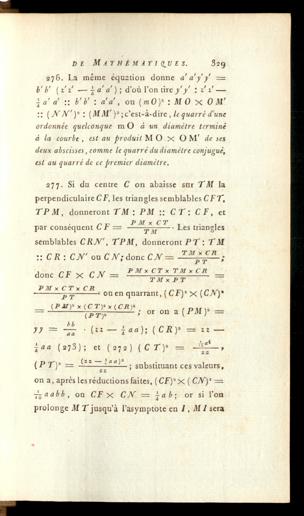 DE MATHÉMATIQUES. 329
276. La même équation donne a'a'y'y' =
b'b' (z'z' — ¼ a'a'); d'où l'on tire y'y' : z'z' —
¼ a'a' :: b'b' : a'a', ou (mO)² : MO × OM'
:: (NN')² : (MM')²; c'est-à-dire, le quarré d'une
ordonnée quelconque mO à un diamètre terminé
à la courbe, est au produit MO × OM' de ses
deux abscisses, comme le quarré du diamètre conjugué,
est au quarré de ce premier diamètre.
277. Si du centre C on abaisse sur TM la
perpendiculaire CF, les triangles semblables CFT,
TPM, donneront TM : PM :: CT : CF, et
par conséquent CF = PM × CT / TM. Les triangles
semblables CRN', TPM, donneront PT : TM
:: CR : CN' ou CN; donc CN = TM × CR / PT;
donc CF × CN = PM × CT × TM × CR / TM × PT =
PM × CT × CR / PT ou en quarrant, (CF)² × (CN)²
= (PM)² × (CT)² × (CR)² / (PT)²; or on a (PM)² =
yy = bb / aa . (zz — ¼ aa); (CR)² = zz —
¼ aa (273); et (272) (CT)² = 1/16 a⁴ / zz,
(PT)² = (zz — ¼ aa)² / zz; substituant ces valeurs,
on a, après les réductions faites, (CF)² × (CN)² =
1/16 aabb, ou CF × CN = ¼ ab; or si l'on
prolonge MT jusqu'à l'asymptote en I, MI sera